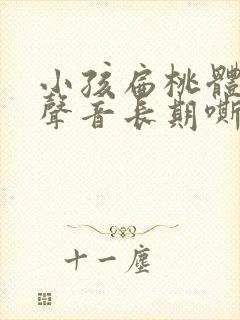 小孩扁桃體
聲音長期嘶
十一塵